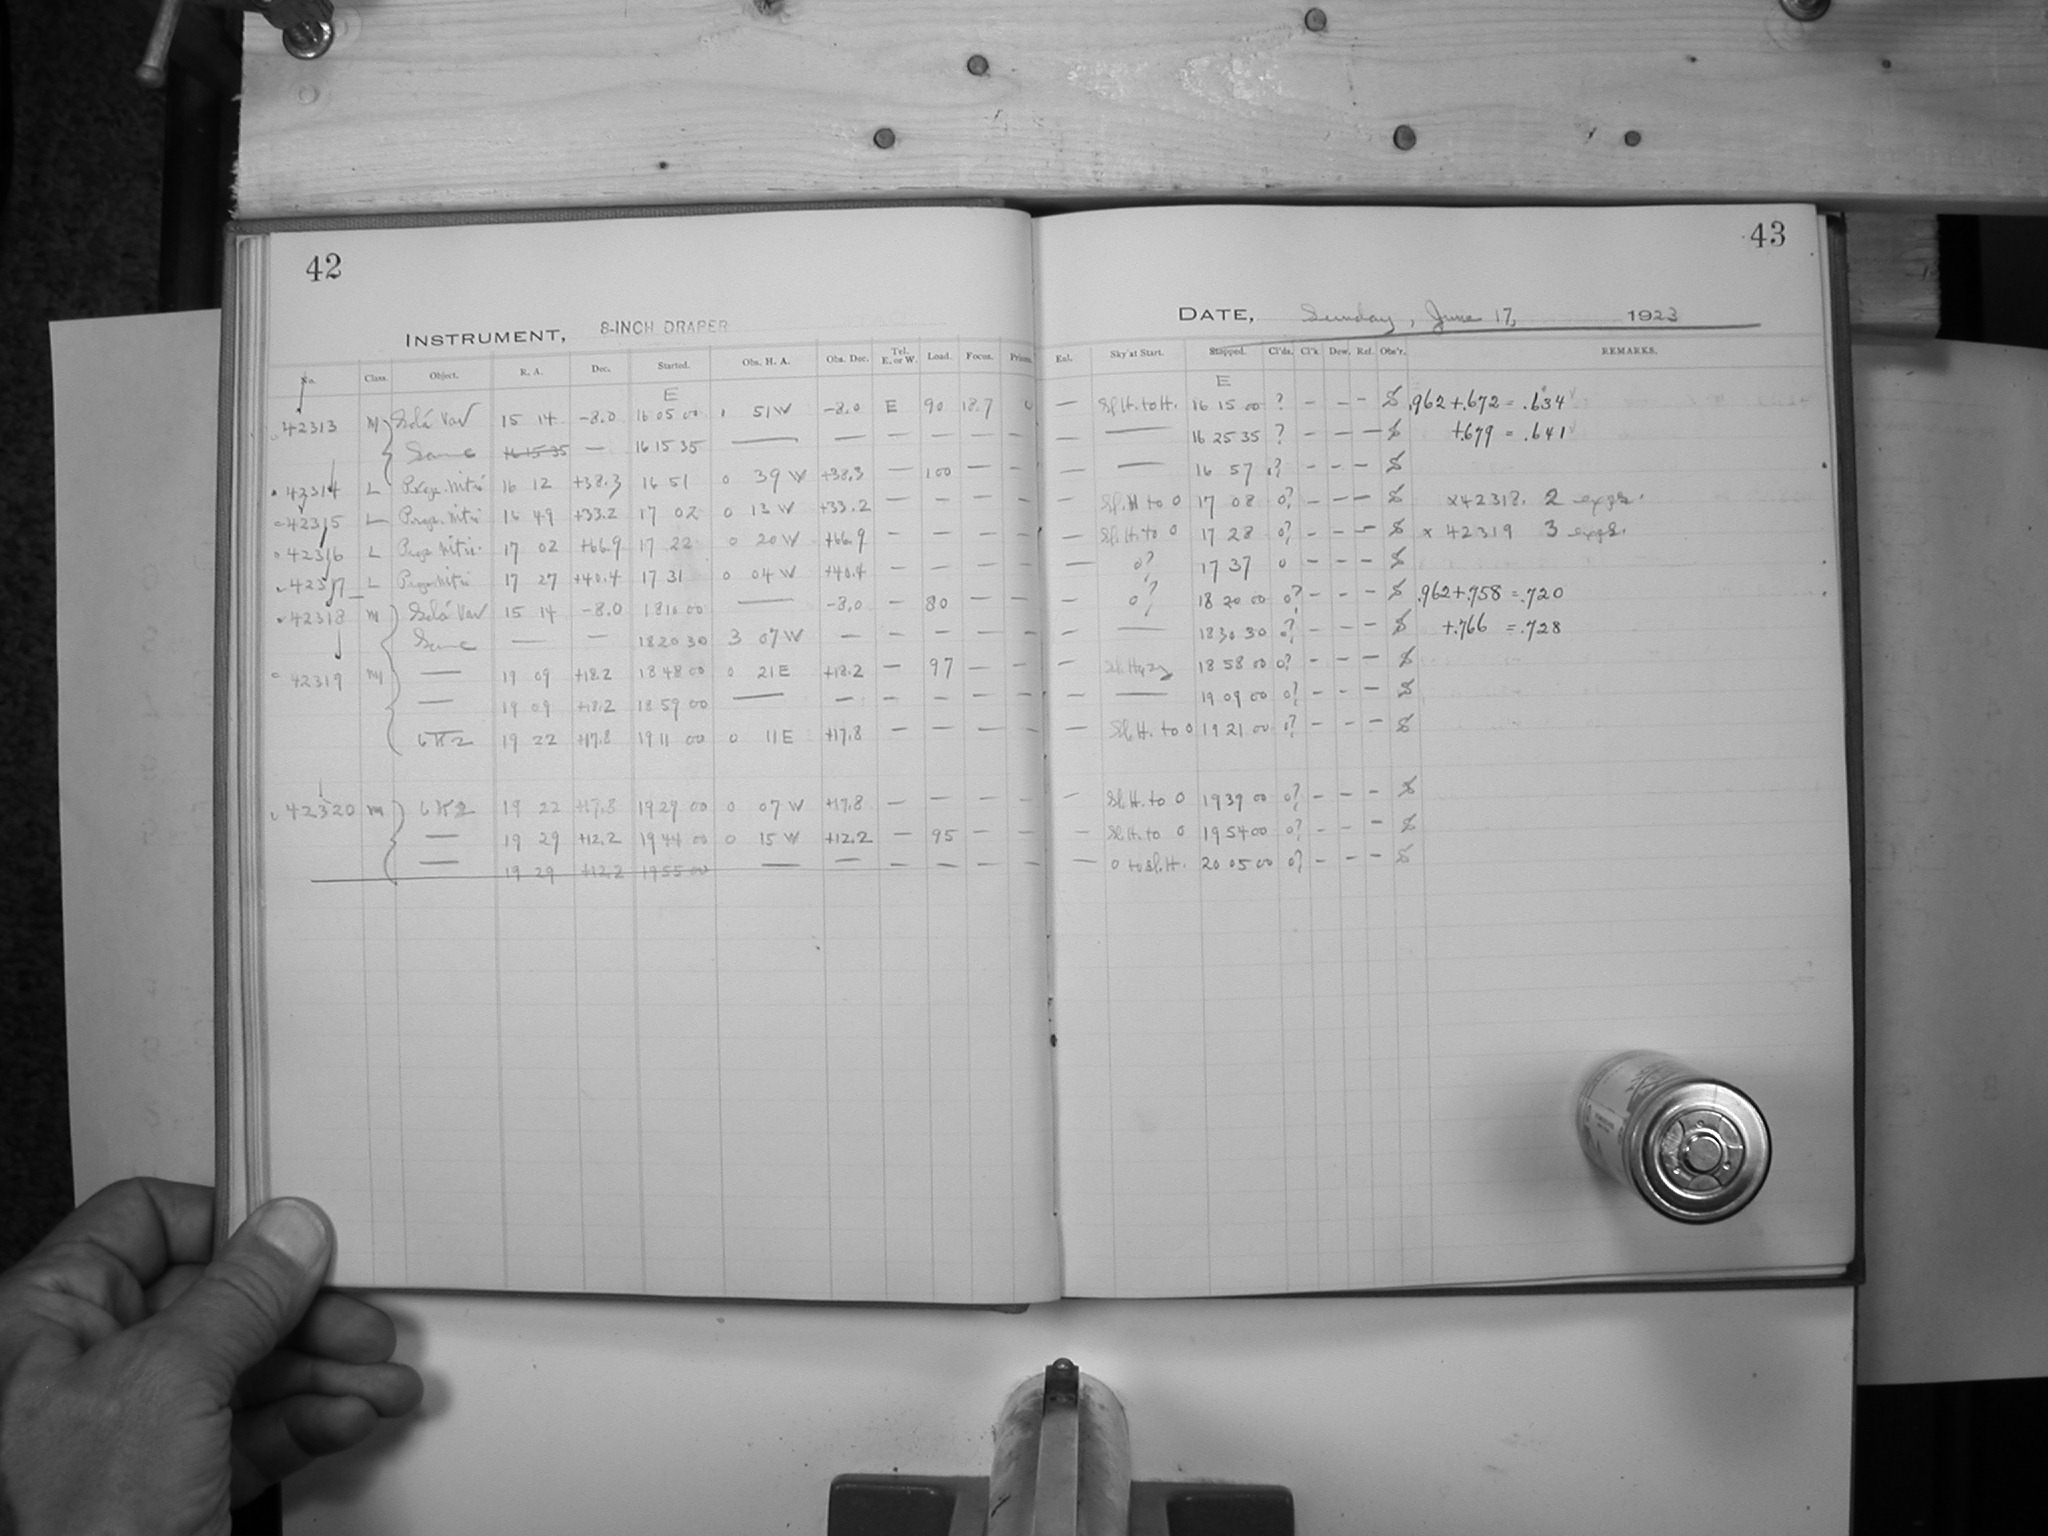 42
43
INSTRUMENT, 8-INCH DRAPER
DATE, Sunday, June 17, 1923
No. Class. Object. R. A. Dec. Started. Obs. H. A. Obs. Dec. Tel. E. or W. Load. Focus. Prism.
Enl. Sky at Start. Stopped. Cl'ds. Cl'k Dew. Ref. Obs'r. REMARKS.
E E
42313 M Var 15 14 -8.0 16 05 00 51 W -8.0 E 90 18.7 — Sl. H. to H. 16 15 00 ? – – – S .962 + .672 = .634
Same 16 15 35 — 16 15 35 — — — — — — — — 16 25 35 ? – – – S +.679 = .641
42314 L 16 12 +38.3 16 51 0 39 W +38.3 — 100 — — — — 16 57 ? – – – S
42315 L 16 49 +33.2 17 02 0 13 W +33.2 — — — — — Sl. H to 0 17 08 0? – – – S x 42318. 2 exps.
42316 L 17 02 +66.9 17 22 0 20 W +66.9 — — — — — Sl. H. to 0 17 28 0? – – – S x 42319 3 exps.
42317 L 17 27 +40.4 17 31 0 04 W +40.4 — — — — — 0? 17 37 0 – – – S
42318 M Var 15 14 -8.0 18 10 00 — -8.0 — 80 — — — 0? 18 20 00 0? – – – S .962 + .758 = .720
Same — — 18 20 30 3 07 W — — — — — — — 18 30 30 0? – – – S +.766 = .728
42319 M — 19 09 +18.2 18 48 00 0 21 E +18.2 — 97 — — — Sl. Hazy 18 58 00 0? – – – S
— 19 09 +18.2 18 59 00 — — — — — — — — 19 09 00 0? – – – S
19 22 +17.8 19 11 00 0 11 E +17.8 — — — — — Sl. H. to 0 19 21 00 ? – – – S
42320 M 19 22 +17.8 19 29 00 0 07 W +17.8 — — — — — Sl. H. to 0 19 39 00 0? – – – S
— 19 29 +12.2 19 44 00 0 15 W +12.2 — 95 — — — Sl. H. to 0 19 54 00 0? – – – S
— 19 29 +12.2 19 55 00 — — — — — — — 0 to Sl. H. 20 05 00 0? – – – S